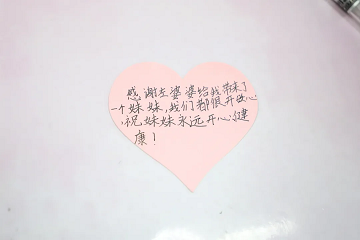 感谢左婆婆给我带来了
一个妹妹,我们都很开心
,祝妹妹永远开心健
康!